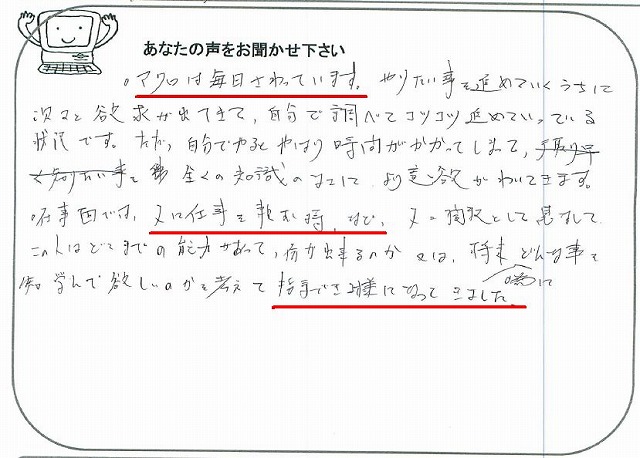 あなたの声をお聞かせ下さい
。マクロは毎日さわっています。やりたい事を進めていくうちに
次々と欲求が出てきて、自分で調べてコツコツ進めていっている
状況です。ただ、自分でやるとやはり時間がかかってしまって、
知りたい事を 全くの知識の 意欲がわいてきます。
仕事面では、人に仕事を頼む時、など、人 として
この人はどこまでの能力があって、何が出来るのか 又は、将来どんな事を
学んで欲しいのかを考えて指示できる様になってきました。